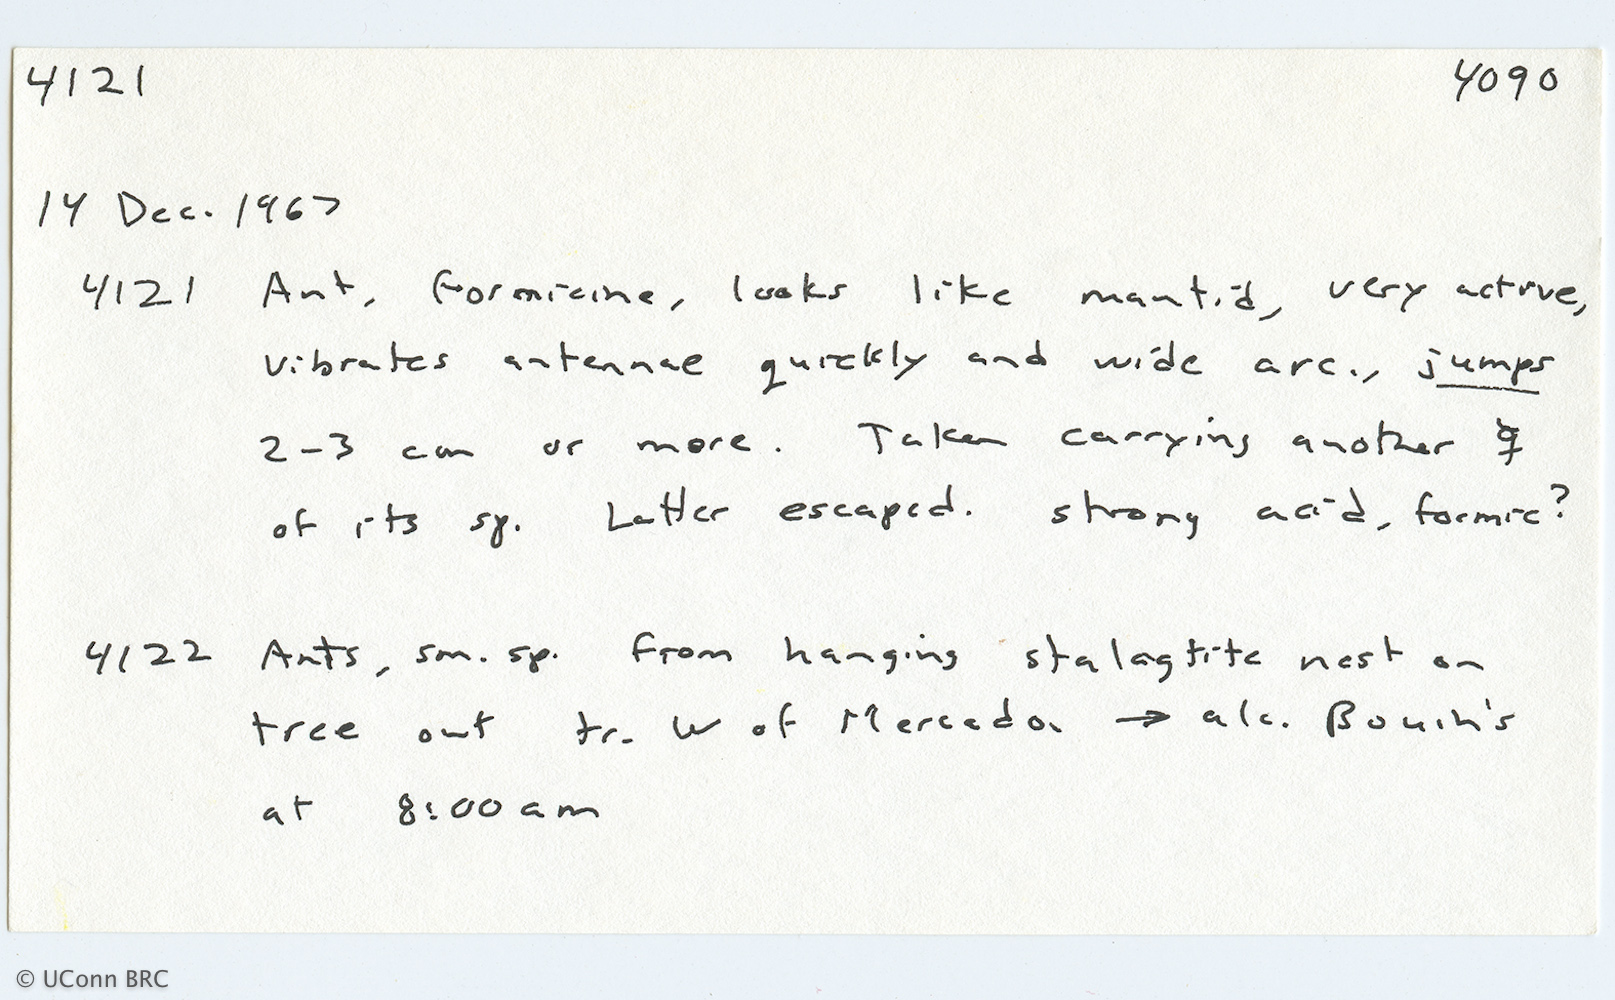 4121 4090
14 Dec. 1967
4121 Ant, formicine, looks like mantid, very active,
vibrates antennae quickly and wide arc., jumps
2-3 cm or more. Taken carrying another ☿
of its sp. Latter escaped. strong acid, formic?
4122 Ants, sm. sp. from hanging stalagtite nest on
tree out tr. W of Mercedor → alc. Bouin's
at 8:00 am
© UConn BRC